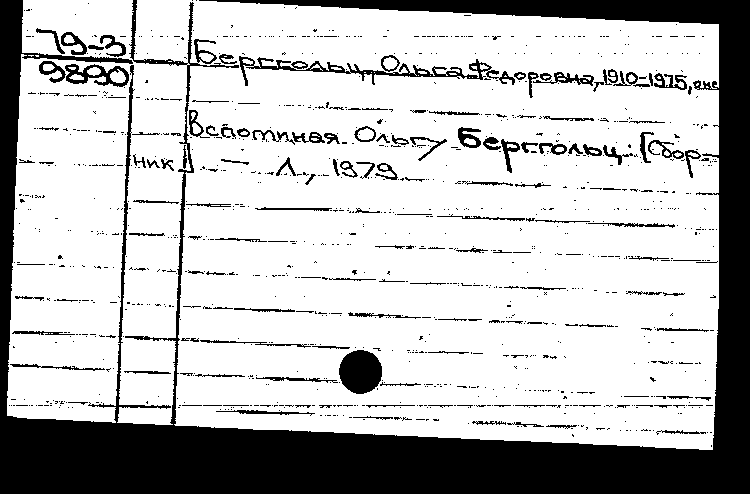 79-3
9890
Берггольц, Ольга Федоровна, 1910-1975, о не
Вспоминая Ольгу Берггольц: [Сбор-
ник]. — Л., 1979